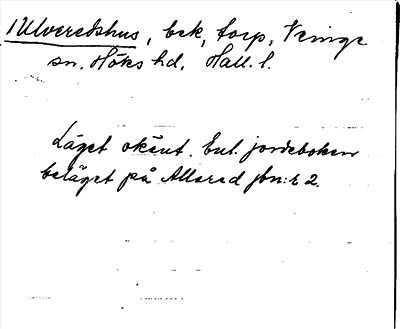 1 Ulveredshus, bek, torp, Veinge
sn. Höks hd, Hall. l.
Läget okänt. Enl. jordeboken
beläget på Allared jbn: r 2.